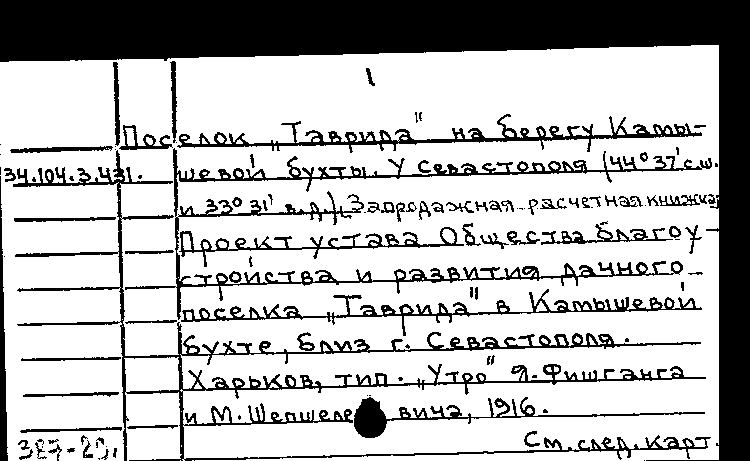 1
Поселок „Таврида" на берегу Камы-
34.104.3.431. шевой бухты. У Севастополя (44° 37' с.ш.
и 33° 31' в.д.). Запродажная расчетная книжка
Проект устава Общества благоу-
стройства и развития дачного
поселка „Таврида" в Камышевой
бухте, близ г. Севастополя.
Харьков, тип. „Утро" Я. Фишганга
и М. Шепшелевича, 1916.
См. след. карт.